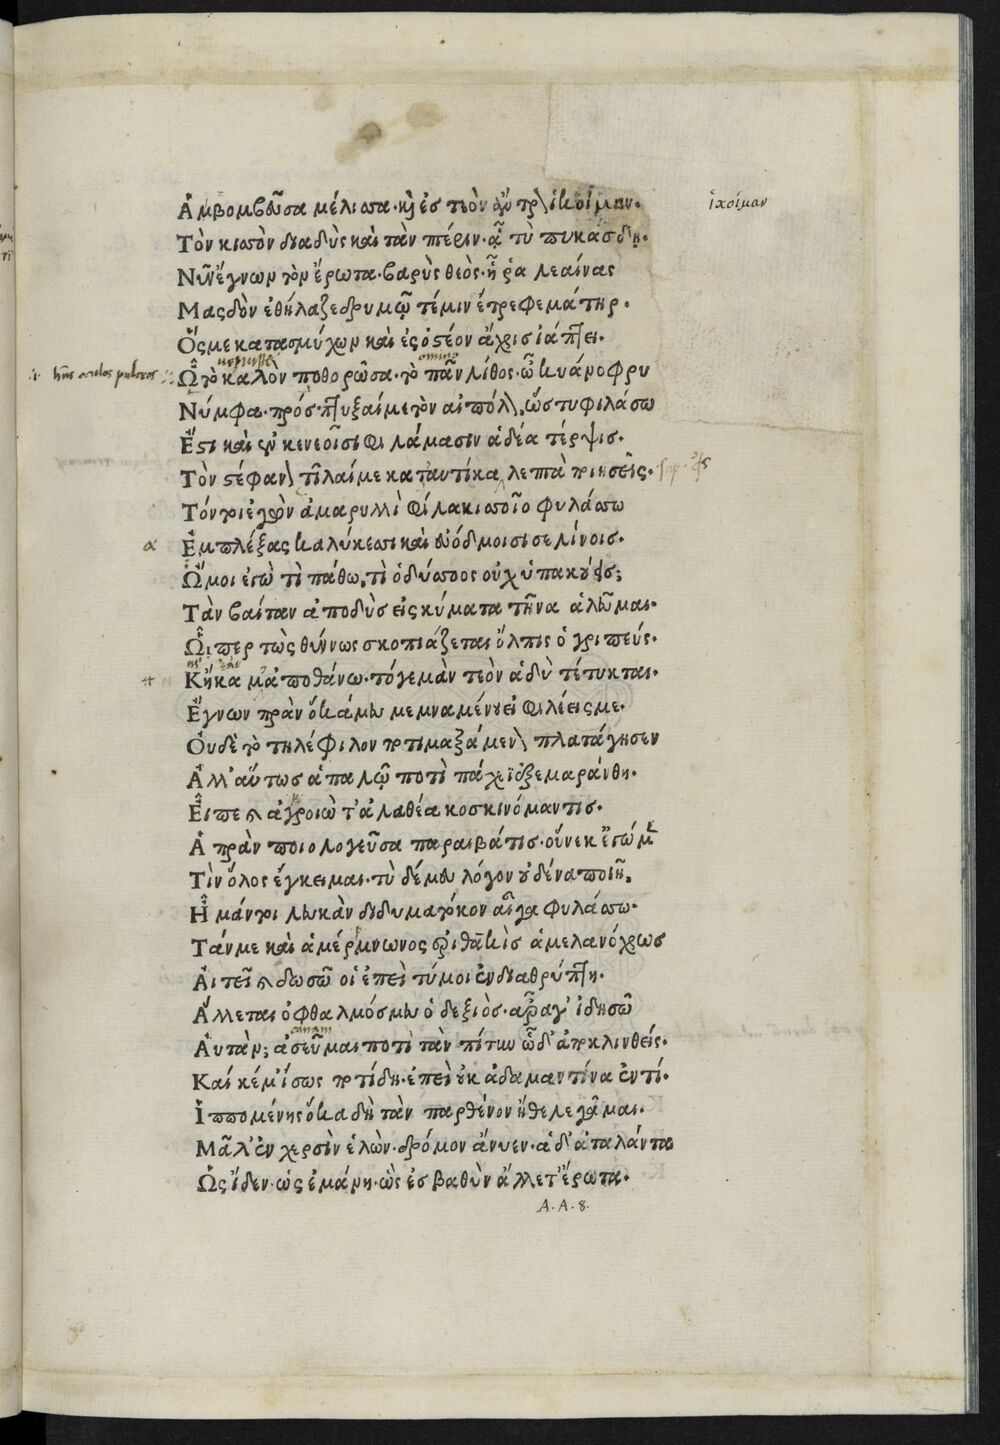 Ἀμβομβεῦσα μέλισσα· καὶ ἐσ τεὸν ἄντρον ἱκοίμαν· ἱκοίμαν
Τὸν κισσὸν διαδὺς καὶ τὰν πτέριν· ᾇ τὺ πυκάσδη·
Νῦν ἔγνων τὸν ἔρωτα· βαρὺς θεὸς· ἦ ῥα λεαίνας
Μασδὸν ἐθήλαζε δρυμῷ τέ μιν ἔτρεφε μάτηρ·
Ὅς με κατασμύχων καὶ ἐς ὀστέον ἄχρις ἰάπτει·
Ὦ τὸ καλὸν ποθορῶσα· τὸ πᾶν λίθος· ὦ κυάνοφρυ
Νύμφα· πρόσπτυξαί με τὸν αἰπόλον, ὥς τυ φιλάσω
Ἔστι καὶ ἐν κενεοῖσι φιλάμασιν ἁδέα τέρψις·
Τὸν στέφανον τῖλαί με καταυτίκα λεπτὰ ποιησεῖς·
Τόν τοι ἐγὼν ἀμαρυλλὶ φίλα κισσοῖο φυλάσσω
α Ἐμπλέξας καλύκεσσι καὶ εὐόδμοισι σελίνοις·
Ὤμοι ἐγὼ τὶ πάθω, τὶ ὁ δύσσοος οὐχ ὑπακούεις;
Τὰν βαίταν ἀποδὺς εἰς κύματα τῆνα ἁλεῦμαι·
Ὧιπερ τὼς θύννως σκοπιάζεται ὄλπις ὁ γριπεύς·
Κἤκα μὰ ποθάνω· τόγε μὰν τεὸν ἁδὺ τέτυκται·
Ἔγνων πρὰν ὅκά μευ μεμναμένου εἰ φιλέεις με·
Οὐδὲ τὸ τηλέφιλον ποτιμαξάμενον πλατάγησεν
Ἀλλ' αὕτως ἁπαλῷ ποτὶ πάχεϊ ἐξεμαράνθη·
Εἶπε καὶ ἀγροιὼ τ' ἀλαθέα κοσκινόμαντις·
Ἁ πρὰν ποιολογεῦσα παραιβάτις· οὕνεκ' ἐγώ μὲν
Τὶν ὅλος ἔγκειμαι· τὺ δέ μευ λόγον οὐδένα ποιῇ.
Ἦ μάν τοι λευκὰν διδυματόκον αἶγα φυλάσσω·
Τάν με καὶ ἁ μέρμνωνος ἐριθακὶς ἁ μελανόχρως
Αἰτεῖ καὶ δωσῶ οἱ ἐπεὶ τύ μοι ἐνδιαθρύπτη·
Ἅλλεται ὀφθαλμός μευ ὁ δεξιὸς· ἆρά γ' ἰδησῶ
Αὐτὰν; ᾀσεῦμαι ποτὶ τὰν πίτυν ὧδ' ἀποκλινθείς·
Καί κέ μ' ἴσως ποτίδη· ἐπεὶ οὐκ ἀδαμαντίνα ἐντί·
Ἱππομένης ὅκα δὴ τὰν παρθένον ἤθελε γᾶμαι·
Μᾶλ' ἐν χερσὶν ἑλὼν· δρόμον ἄνυεν· ἁ δ' ἀταλάντα
Ὡς ἴδεν· ὡς ἐμάνη· ὣς ἐς βαθὺν ἅλλετ' ἔρωτα·
A. A. 8.